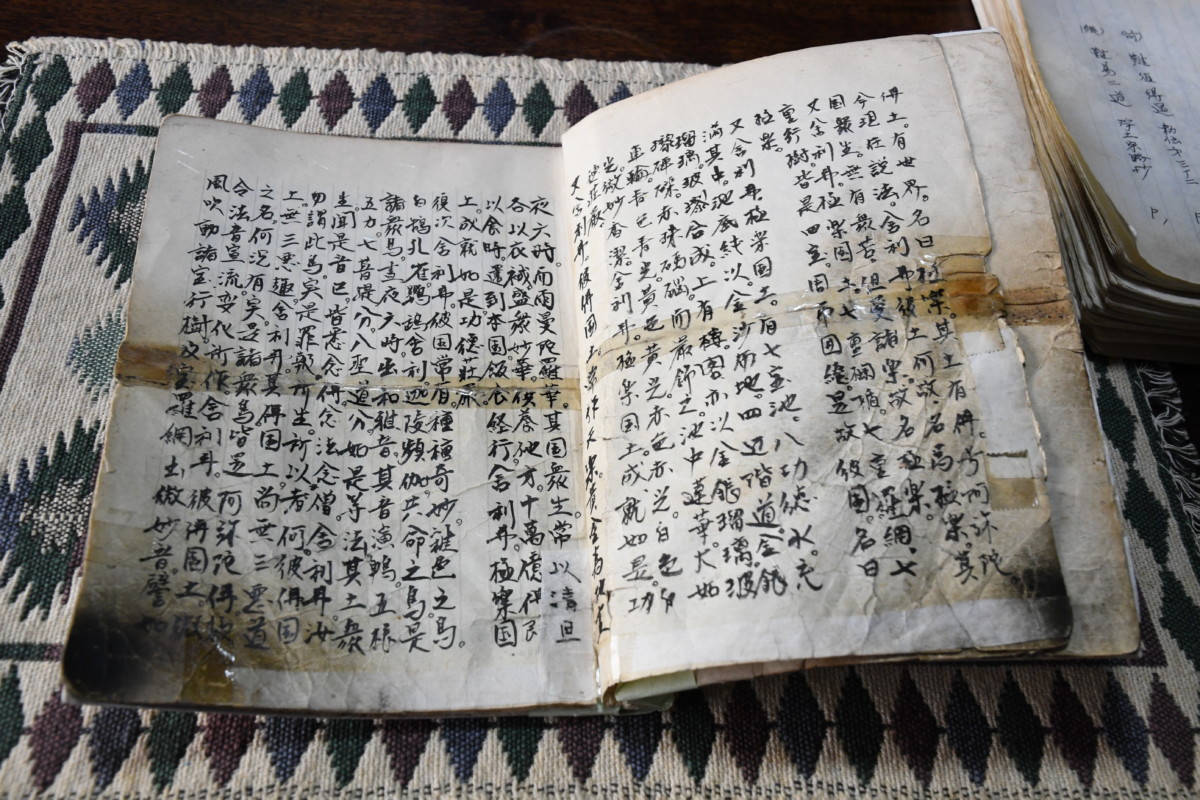 佛土。有世界。名曰極楽。其土有佛。号阿弥陀
今現在説法。舎利弗。彼土何故名為極楽。其
国衆生。無有衆苦。但受諸楽。故名極楽。
又舎利弗。極楽国土。七重欄楯。七重羅網。七
重行樹。皆是四宝。周帀囲繞。是故彼国。名曰
極楽。
又舎利弗。極楽国土。有七宝池。八功徳水。充
満其中。池底純以。金沙布地。四辺階道。金銀
瑠璃。玻瓈合成。上有樓閣。亦以金銀瑠璃。玻
瓈硨磲。赤珠碼碯。而厳飾之。池中蓮華。大如
車輪。青色青光。黄色黄光。赤色赤光。白色白
光。微妙香潔。舎利弗。極楽国土。成就如是。功
徳荘厳。
又舎利弗。彼佛国土。常作天楽。黄金為地。昼
夜六時。而雨曼陀羅華。其国衆生。常以清旦
各以衣裓。盛衆妙華。供養他方。十萬億佛。即
以食時。還到本国。飯食経行。舎利弗。極楽国
土。成就如是。功徳荘厳。
復次舎利弗。彼国常有。種種奇妙。雑色之鳥。
白鵠孔雀。鸚鵡舎利。迦陵頻伽。共命之鳥。是
諸衆鳥。昼夜六時。出和雅音。其音演暢。五根
五力。七菩提分。八聖道分。如是等法。其土衆
生。聞是音已。皆悉念佛。念法念僧。舎利弗。汝
勿謂此鳥。実是罪報所生。所以者何。彼佛国
土。無三悪趣。舎利弗。其佛国土。尚無三悪道
之名。何況有実。是諸衆鳥。皆是阿弥陀佛。欲
令法音宣流。変化所作。舎利弗。彼佛国土。微
風吹動。諸宝行樹。及宝羅網。出微妙音。譬如
難易二道 浄土宗略抄 P1